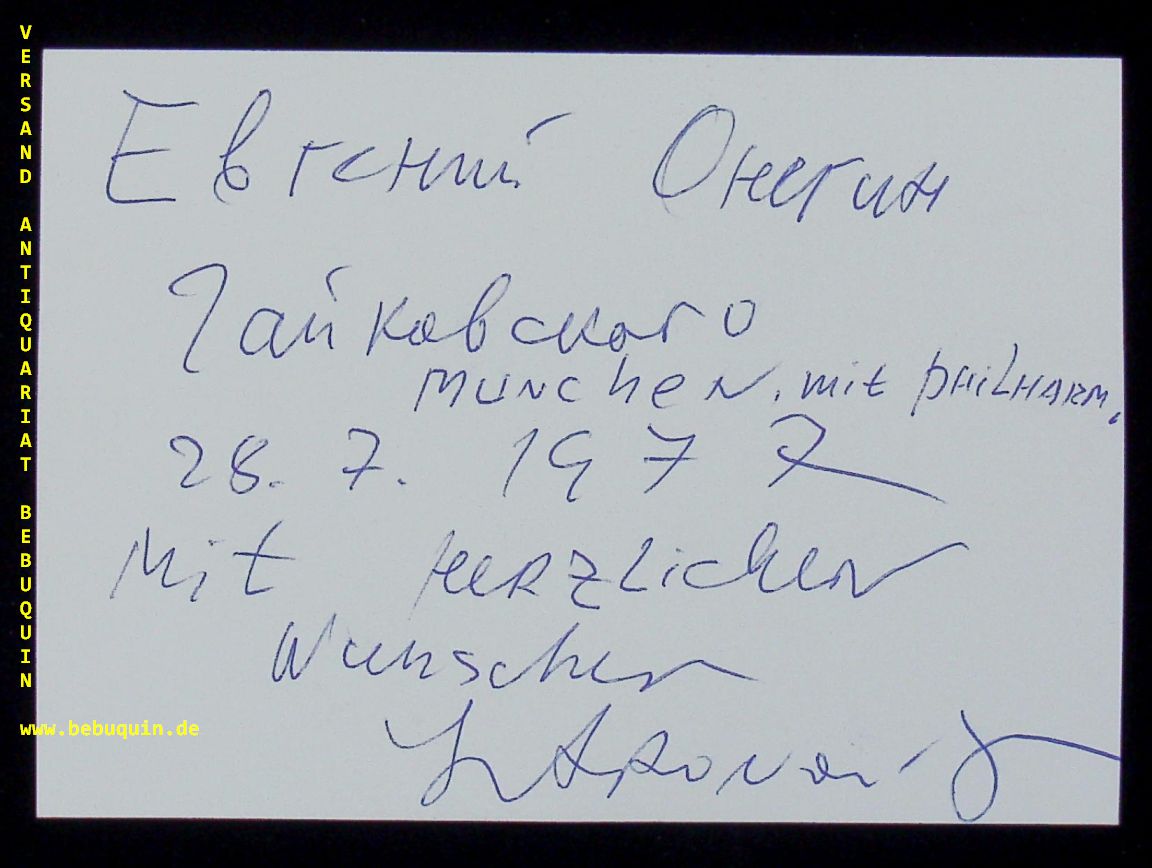 VERSAND ANTIQUARIAT BEBUQUIN
Евгений Онегин
Чайковского
MUNChEN. mit PHILHARM.
28. 7. 1977
Mit HERZLICHEN
Wunschen
www.bebuquin.de